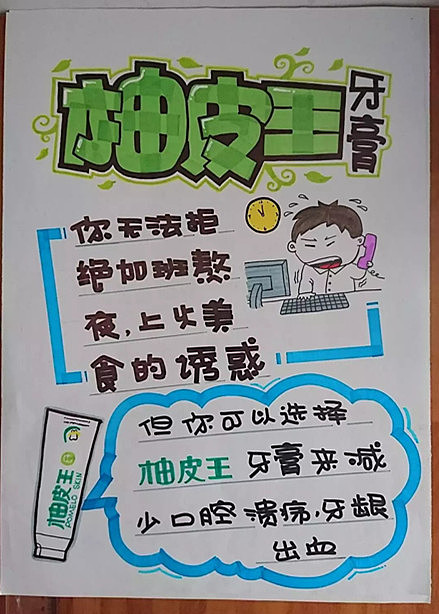 柚皮王
牙膏
你无法拒
绝加班熬
夜,上火美
食的诱惑
但你可以选择
柚皮王牙膏来减
少口腔溃疡,牙龈
出血
柚皮王
POMELO SKIN